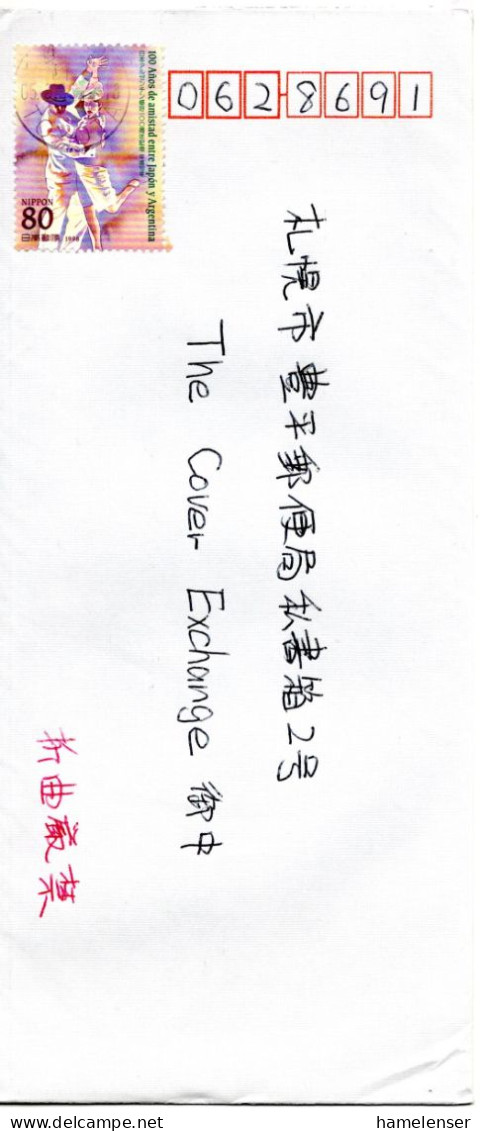 0628691
100 Años de amistad entre Japón y Argentina
NIPPON
80
日本郵便 1998
札幌市豊平郵便局私書箱2号
The Cover Exchange 御中
折曲厳禁
hamelenser